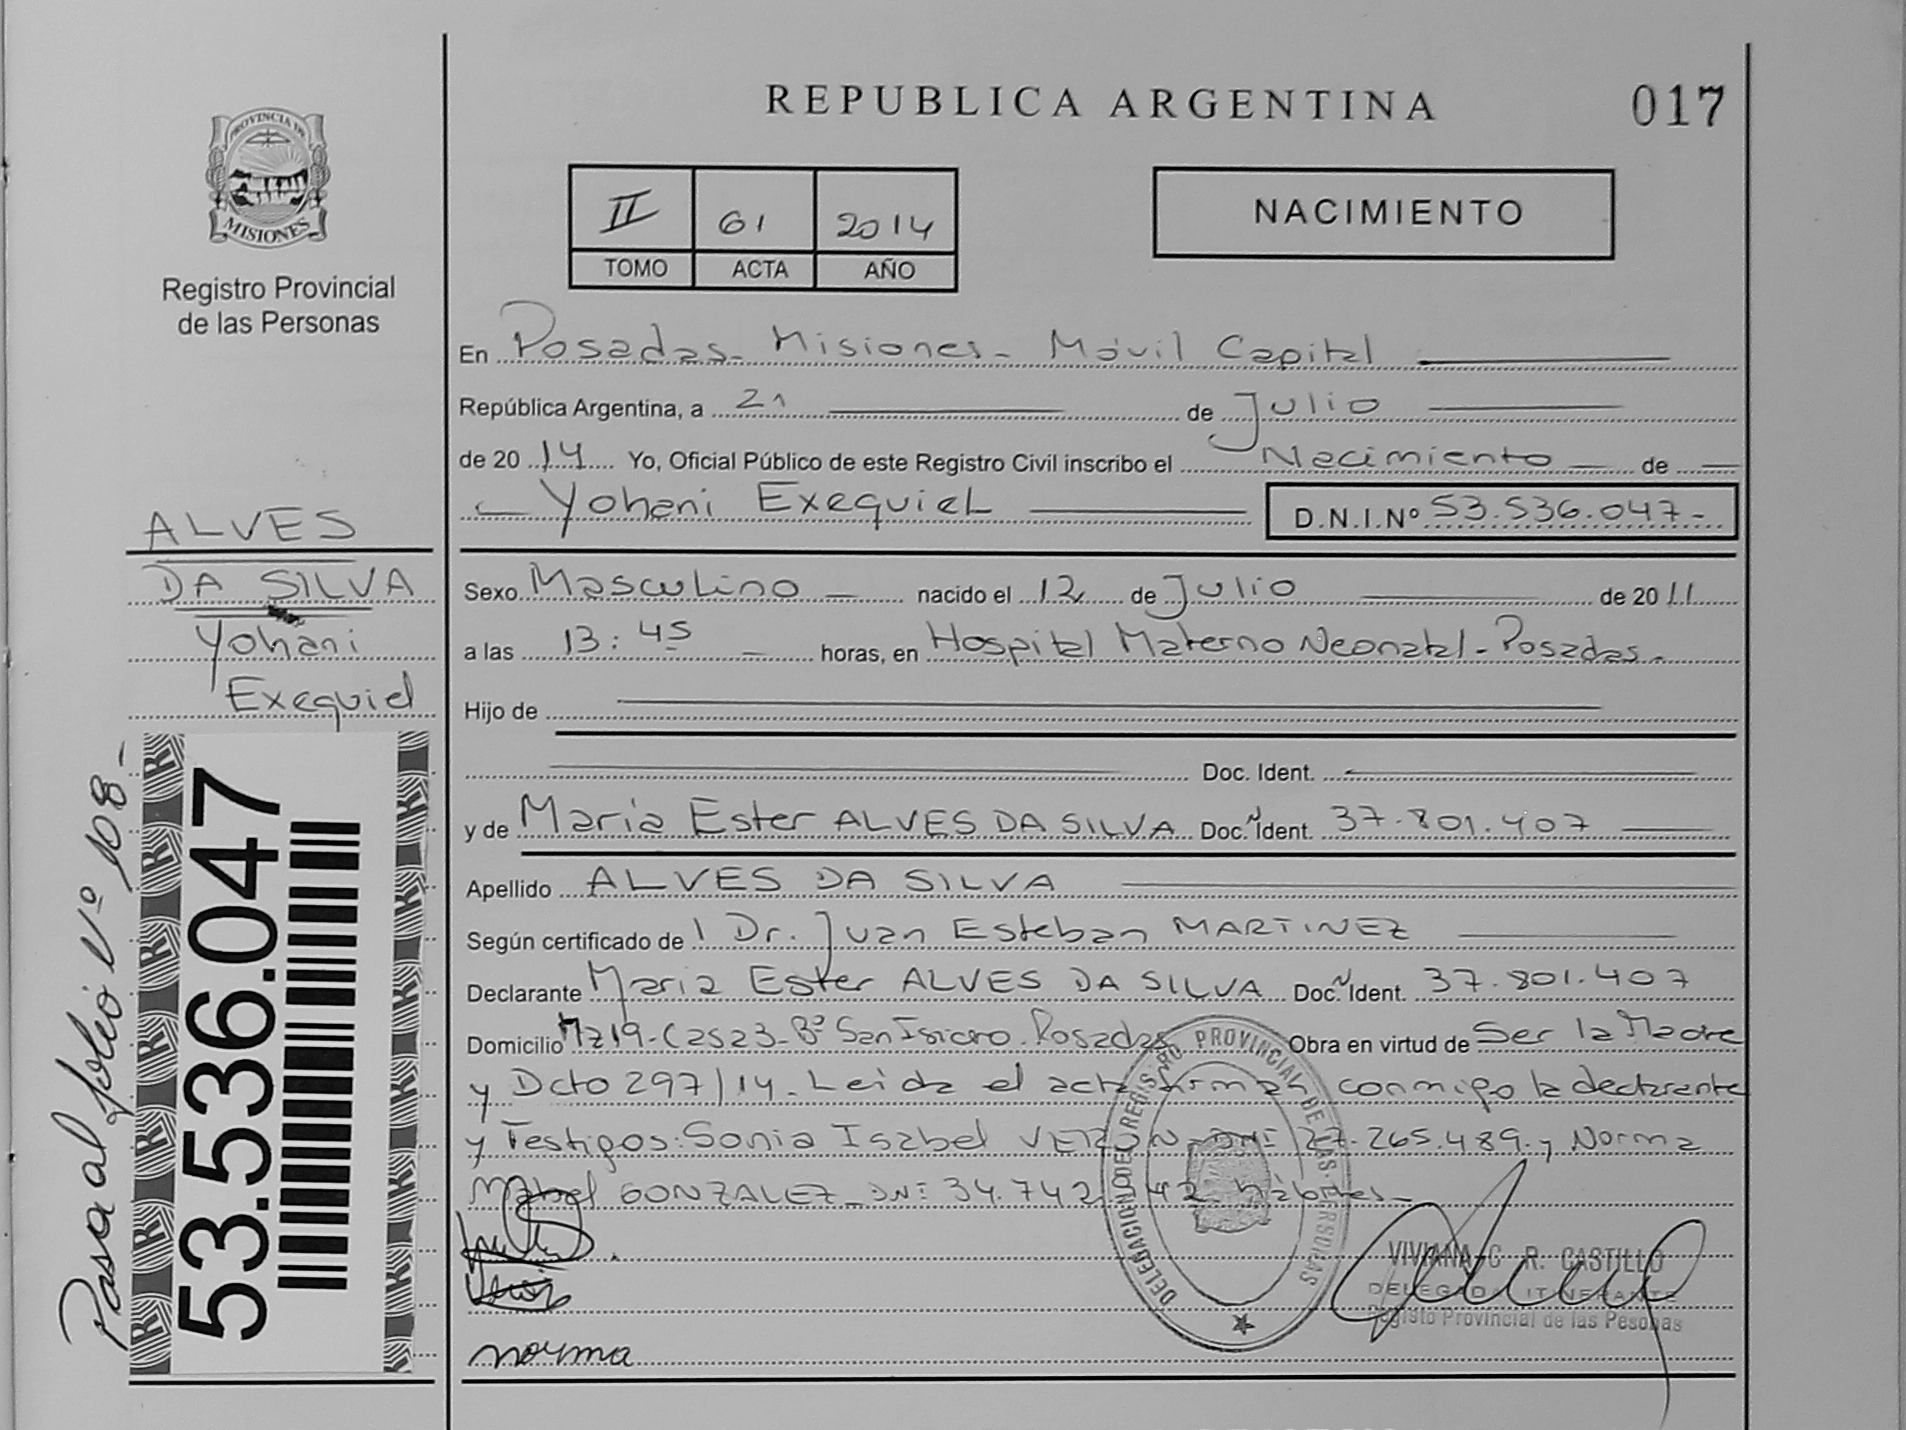 REPUBLICA ARGENTINA
017
PROVINCIA DE
MISIONES
Registro Provincial
de las Personas
II 61 2014
TOMO ACTA AÑO
NACIMIENTO
En Posadas - Misiones - Móvil Capital
República Argentina, a 21 de Julio
de 2014 Yo, Oficial Público de este Registro Civil inscribo el Nacimiento de
Yohani Exequiel D.N.I.Nº 53.536.047-
ALVES
DA SILVA
Yohani
Exequiel
Sexo Masculino nacido el 12 de Julio de 2011
a las 13:45 horas, en Hospital Materno Neonatal - Posadas -
Hijo de
Doc. Ident.
y de Maria Ester ALVES DA SILVA Doc. Ident. 37.801.407
Apellido ALVES DA SILVA
Según certificado de l Dr. Juan Esteban MARTINEZ
Declarante Maria Ester ALVES DA SILVA Doc. Ident. 37.801.407
Domicilio Mz 19 - Casa 23 - Bº San Isidro. Posadas Obra en virtud de Ser la Madre
y Dcto 297/14. Leida el acta firman conmigo la declarante
y Testigos: Sonia Isabel VERON - DNI 27.265.489. y Norma
Mabel GONZALEZ - DNI 34.742. 42 hábiles -
norma
DELEGACION DEL REGISTRO PROVINCIAL DE LAS PERSONAS
VIVIANA C. R. CASTILLO
DELEGADA ITINERANTE
Registo Provincial de las Pesonas
53.536.047
Pasa al folio Nº 108 -